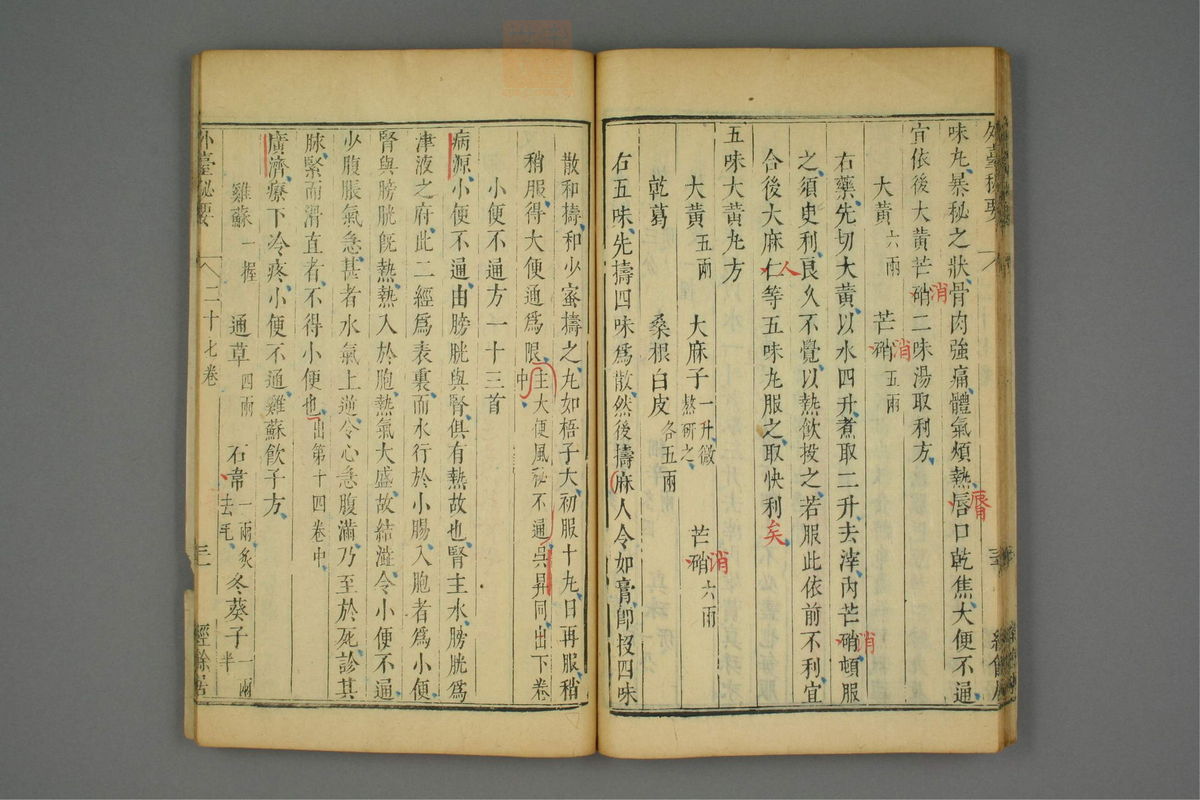 味丸暴秘之狀骨肉強痛體氣煩熱唇口乾焦大便不通
脣
宜依後大黃芒硝二味湯取利方
消
大黃六兩 芒硝五兩
消
右藥先切大黃以水四升煮取二升去滓内芒硝頓服
消
之須臾利良久不覺以熱飲投之若服此依前不利宜
合後大麻仁等五味丸服之取快利
人
矣
五味大黃丸方
大黃五兩 大麻子一升微熬研之 芒硝六兩
消
乾葛 桑根白皮各五兩
右五味先擣四味爲散然後擣麻人令如膏卽投四味
散和擣和少蜜擣之丸如梧子大初服十丸日再服稍
稍服得大便通爲限主大便風祕不通吳昇同出下卷中
小便不通方一十三首
病源小便不通由膀胱與腎俱有熱故也腎主水膀胱爲
津液之府此二經爲表裏而水行於小腸入胞者爲小便
腎與膀胱旣熱熱入於胞熱氣大盛故結澁令小便不通
少腹脹氣急甚者水氣上逆令心急腹滿乃至於死診其
脉緊而滑直者不得小便也出第十四卷中
廣濟療下冷疼小便不通雞蘇飲子方
雞蘇一握 通草四兩 石韋一兩炙去毛 冬葵子一兩半
外臺秘要 二十七卷 三 經餘居